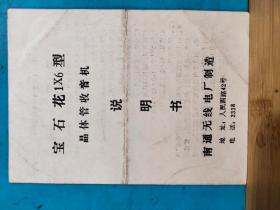 宝石花1X6型
晶体管收音机
说明书
南通无线电厂制造
地址：人民西路42号
电话：3318